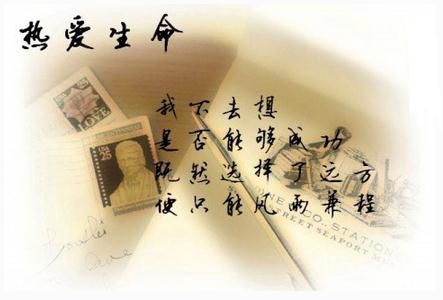 热爱生命
我不去想
是否能够成功
既然选择了远方
便只能风雨兼程
LOVE
STREET SEAPORT